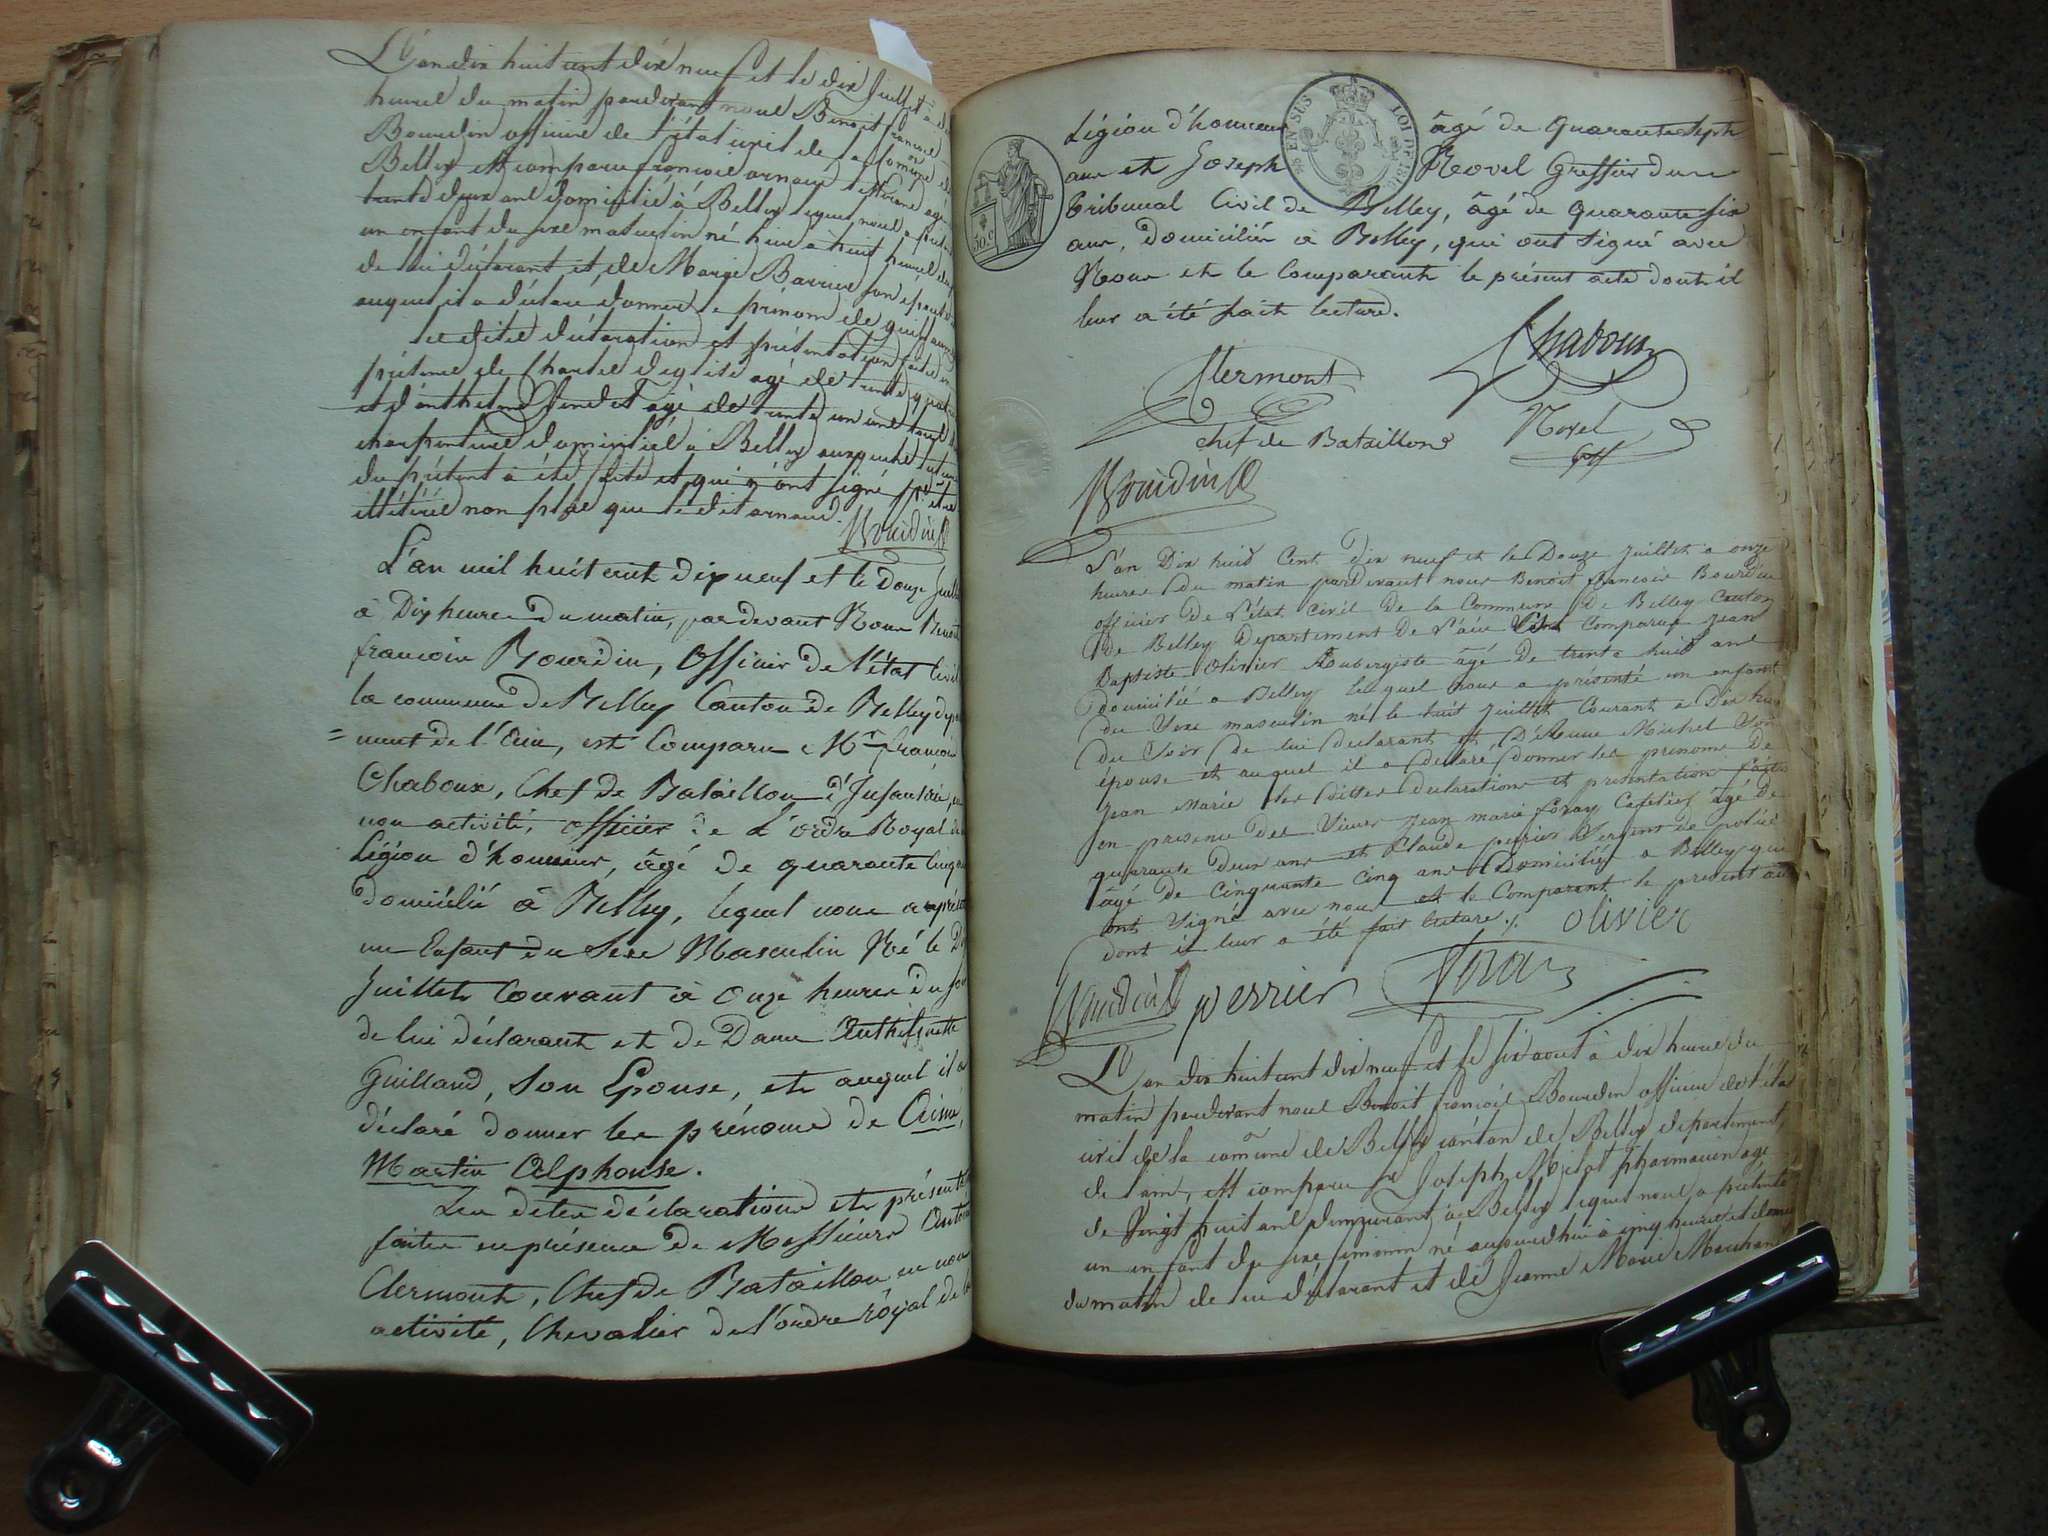 L'an dix huit cent dix neuf et le dix Juillet à
heures du matin pardevant nous Benoit francois
Bourdin officier de l'état civil de la Comune de
Belley est comparu françois arnaud agé
trente deux ans domicilié à Belley lequel nous a
un enfant du sexe masculin né hier à huit heures du
de lui déclarant et de Marie Barrier son epouse
auquel il a déclaré donner le prénom de guillaume
les dites déclaration et présentation faites en
présence de Charles agé de trente quatre
et d'anthelme agé de trente un ans tous
charpentiers domiciliés à Belley auxquels
du présent a été faite et qui n'ont signé pr être
illétérés non plus que le dit arnaud. Bourdin
L'an mil huit cent dix neuf et le Douze Juill
à Dix heures du matin, par devant Nous Benoit
françois Bourdin, Officier de l'état Civil
la commune de Belley Canton de Belley dépar
=ment de l'Ain, est Comparu Mr françois
Chaboux, Chef de Bataillon d'Infanterie, en
non activité, officier de L'ordre Royal de la
Légion d'honneur, âgé de quarante cinq
domicilié à Belley, lequel nous a présen
un Enfant du Sexe Masculin Né le Dix
Juillet Courant à Onze heures du soir
de lui déclarant et de Dame Anthelmette
Guilland, son Epouse, et auquel il a
déclaré donner les prénoms de Aimé,
Martin Alphonse.
Les dites déclarations et présentat
faites en présence de Messieurs Antoine
Clermont, Chef de Bataillon en non
activité, Chevalier de l'ordre royal de la
Légion d'honneur âgé de Quarante Sept
ans et Joseph Rovel Greffier du
tribunal Civil de Belley, âgé de quarante six
ans, domiciliés à Belley, qui ont signé avec
Nous et le Comparant le présent acte dont il
leur a été fait lecture.
EN SUS LOI DE 1816
50 c
Clermont
Chaboux
chef de Bataillon
Rovel
Bourdin
L'an Dix huit Cent dix neuf et le Douze juillet a onze
heures du matin pardevant nous Benoit françois Bourdin
officier de l'état civil de la Commune de Belley Canton
de Belley Département de l'ain Est Comparu Jean
Baptiste Olivier Aubergiste âgé de trente huit ans
domicilié a Belley lequel nous a présenté un enfant
du Sexe masculin né le huit juillet Courant a Dix heu
du Soir de lui Déclarant et D'Anne Michel Son
épouse et auquel il a Déclaré donner les prénoms de
Jean Marie les dittes Déclarations et présentation faites
en presence des Sieurs Jean marie foray Cafetier âgé de
quarante Deux ans et Claude perrier Sergent de police
âgé de cinquante cinq ans Domiciliés a Belley qui
ont Signé avec nous et le Comparant le present acte
dont il leur a été fait lecture ./. olivier
Bourdin perrier foray
L'an dix huit cent dix neuf et le six aout à dix heures du
matin pardevant nous Benoit françois Bourdin officier de l'état
civil de la comune de Belley canton de Belley département
de l'ain, est comparu sr Joseph Milat pharmacien agé
de vingt huit ans demeurant à Belley lequel nous a présenté
un enfant du sexe féminin né aujourdhui à cinq heures et demi
du matin de lui déclarant et de Jeanne Marie Marchand